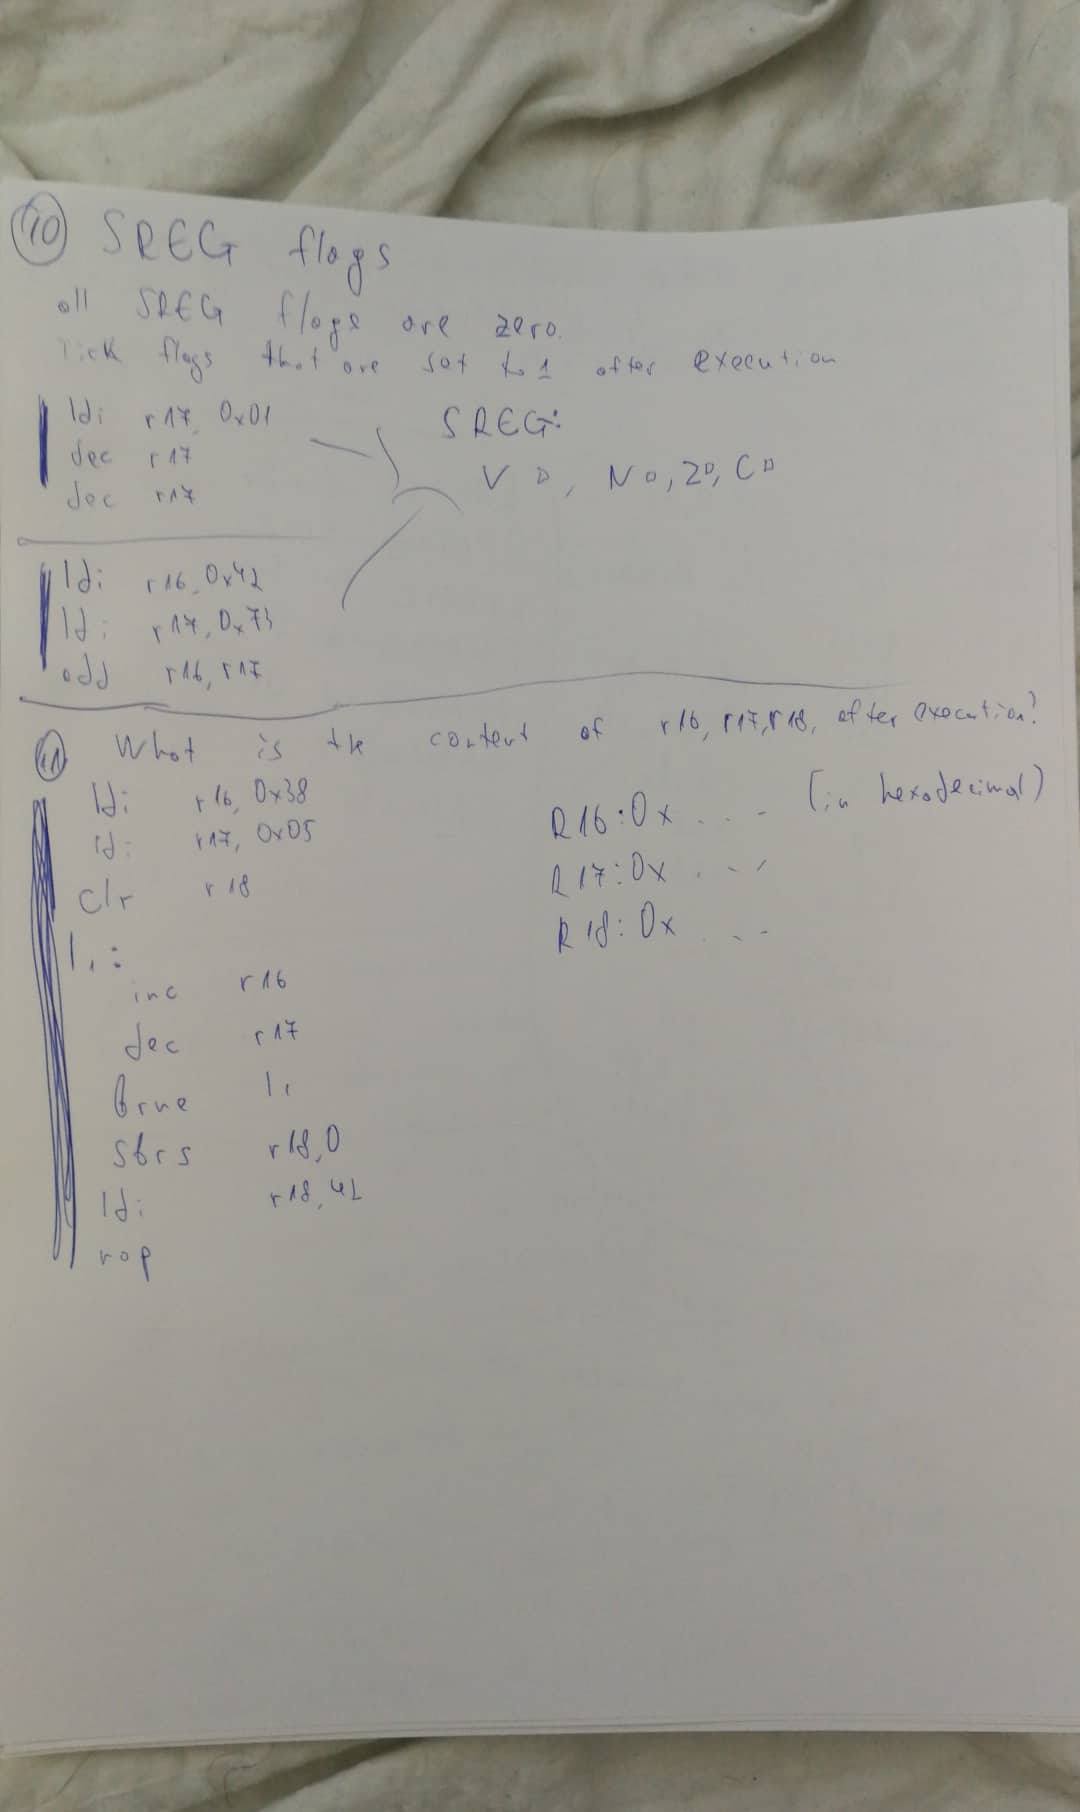 10 SREG flags
all SREG flags are zero.
Tick flags that are set to 1 after execution
ldi r17, 0x01
dec r17
dec r17
SREG:
V □, N □, Z □, C □
ldi r16, 0x42
ldi r17, 0x73
add r16, r17
11 What is the content of r16, r17, r18, after execution?
(in hexadecimal)
ldi r16, 0x38
ldi r17, 0x05
clr r18
l1:
inc r16
dec r17
brne l1
sbrs r18,0
ldi r18, 42
nop
R16: 0x ...
R17: 0x ...
R18: 0x ...